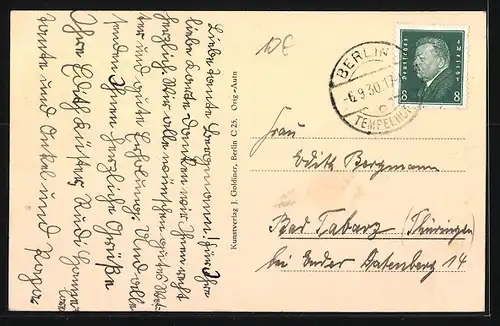 Liebe Tante Bergmann! Für Ihre
liebe Karte danken wir Ihnen recht
herzlich. Wir alle wünschen gutes Wet-
ter und gute Erholung. Und alle
senden Ihnen herzliche Grüße
Ihre Edith Küster, Rudi
Tante und Onkel und
Kunstverlag J. Goldiner, Berlin C 25. Orig.-Auto
BERLIN
-6.9.30.17
TEMPELHOF
Deutsches Reich
8 8
Frau
Edith Bergmann
Bad Tabarz (Thüringen)
bei Ender Datenberg 14